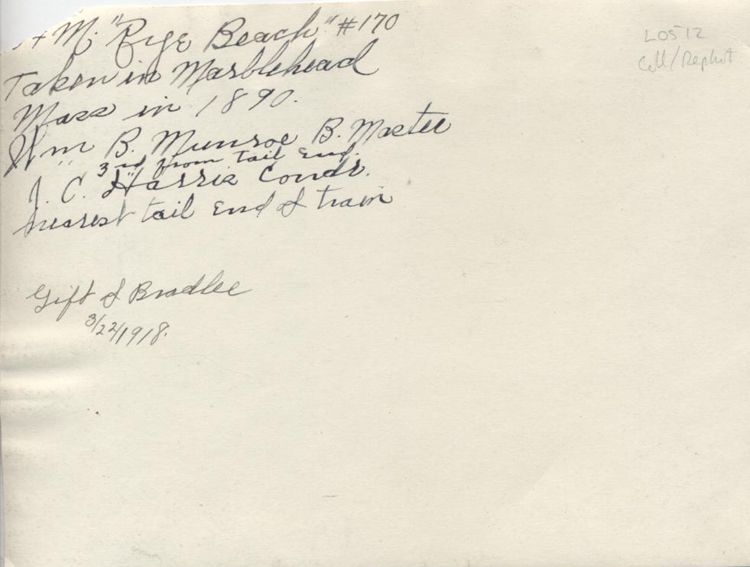 + M. "Rye Beach" #170
Taken in Marblehead
Mass in 1890.
Wm B. Munroe B. Master
" " 3rd from tail End.
J. C. Harris Condr.
nearest tail End of train
Gift of Bradlee
3/22/1918.
L0512
Coll/Rephot